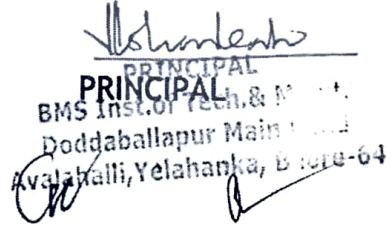 PRINCIPAL
PRINCIPAL
BMS Inst.of Tech.& M
Doddaballapur Main
Avalahalli,Yelahanka, B lore-64